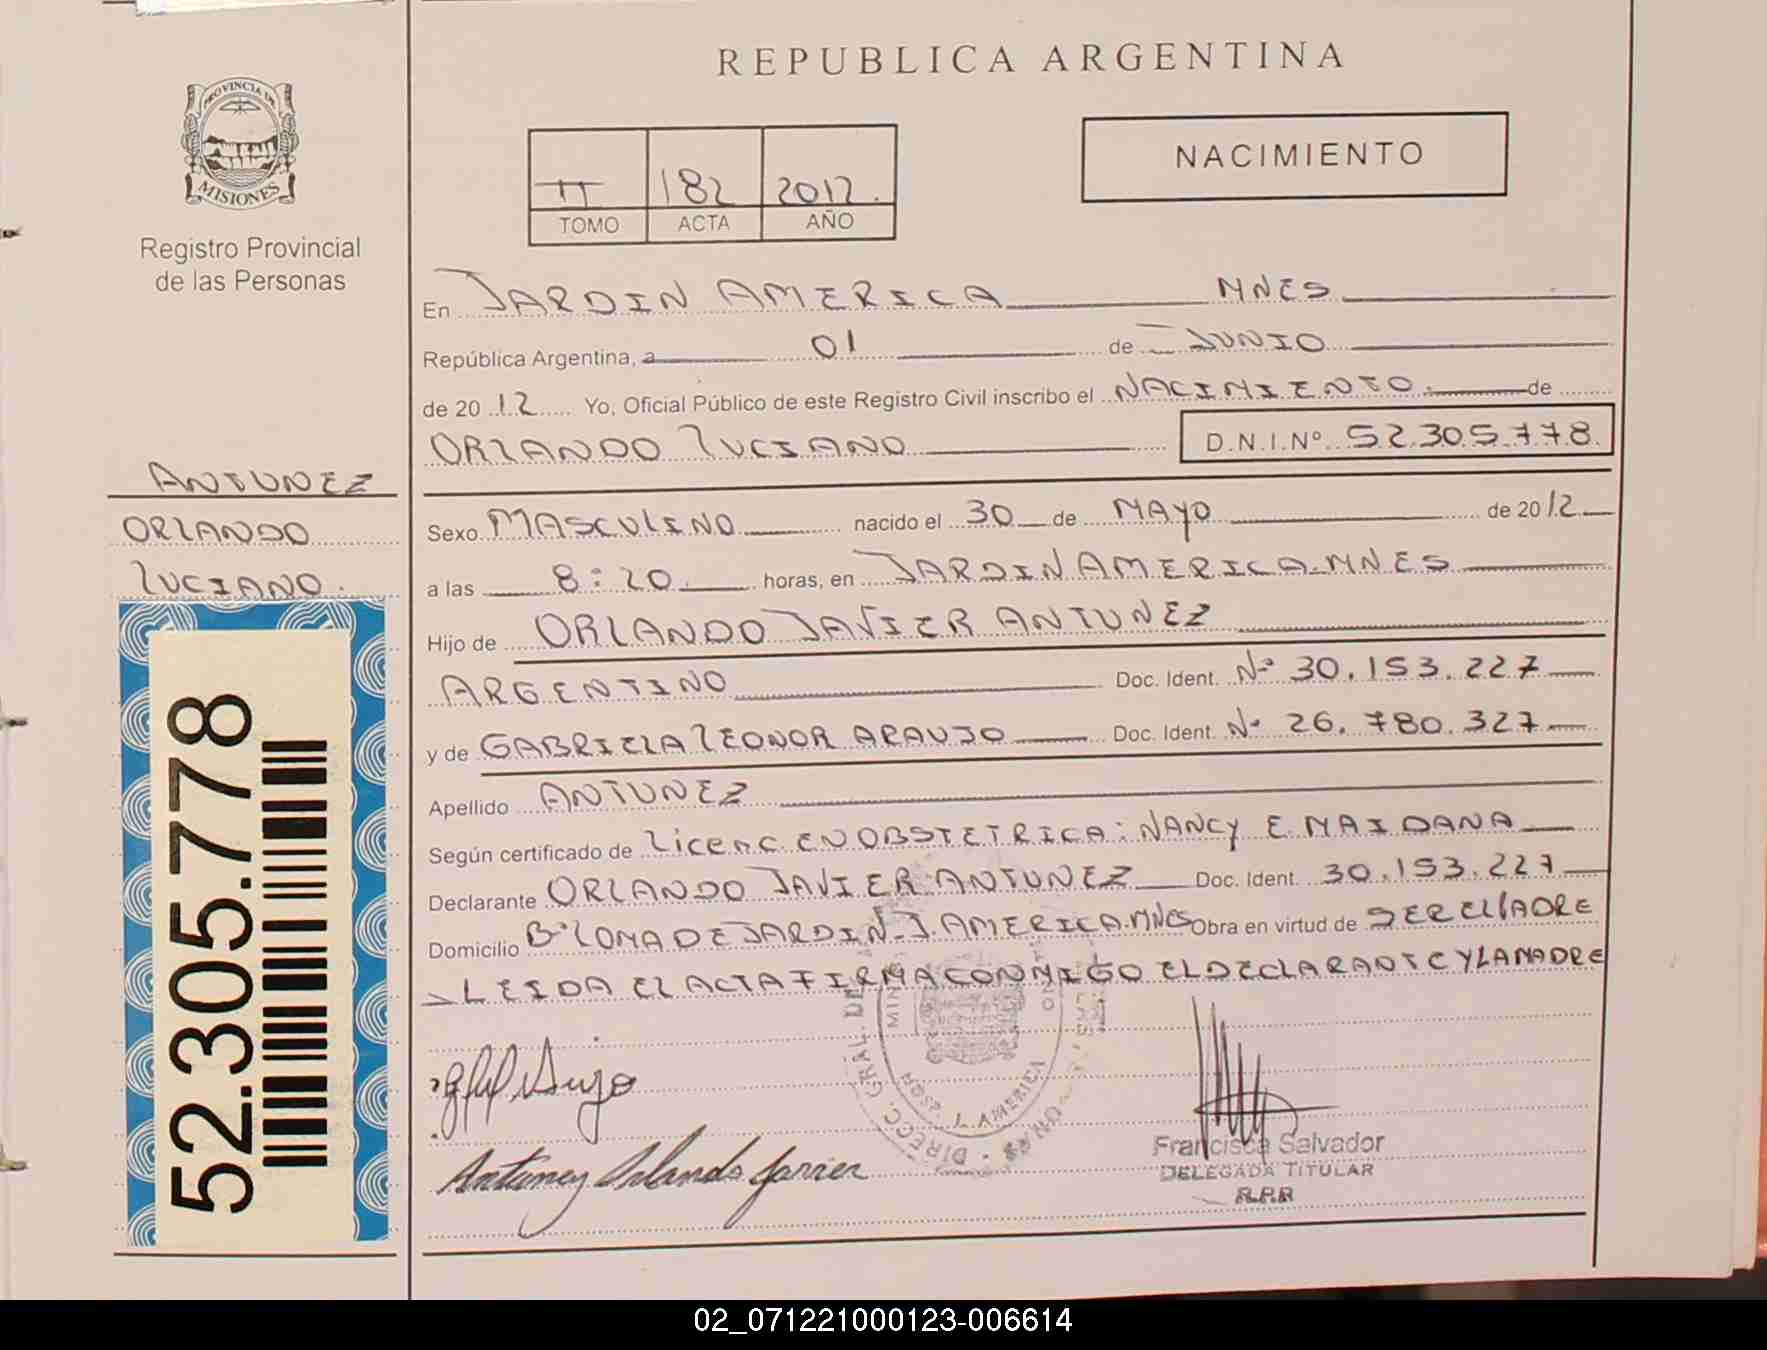 REPUBLICA ARGENTINA
PROVINCIA DE
MISIONES
Registro Provincial
de las Personas
II 182 2012.
TOMO ACTA AÑO
NACIMIENTO
En JARDIN AMERICA MNES
República Argentina, a 01 de JUNIO
de 2012 Yo, Oficial Público de este Registro Civil inscribo el NACIMIENTO. de
ORLANDO LUCIANO D.N.I.Nº 52.305.778.
ANTUNEZ
ORLANDO
LUCIANO.
52.305.778
Sexo MASCULINO nacido el 30 de MAYO de 2012
a las 8:20 horas, en JARDIN AMERICA-MNES
Hijo de ORLANDO JAVIER ANTUNEZ
ARGENTINO Doc. Ident. Nº 30.153.227
y de GABRIELA LEONOR ARAUJO Doc. Ident. Nº 26.780.327
Apellido ANTUNEZ
Según certificado de Licenc. EN OBSTETRICA: NANCY E MAIDANA
Declarante ORLANDO JAVIER ANTUNEZ Doc. Ident. 30.153.227
Domicilio Bº LOMA DE JARDIN-J. AMERICA.MNES Obra en virtud de SER EL PADRE
LEIDA EL ACTA FIRMA CONMIGO EL DECLARANTE Y LA MADRE
DIRECC. GRAL. DE
AMERICA
Antunez Orlando Javier
Francisca Salvador
DELEGADA TITULAR
R.P.P.
02_071221000123-006614